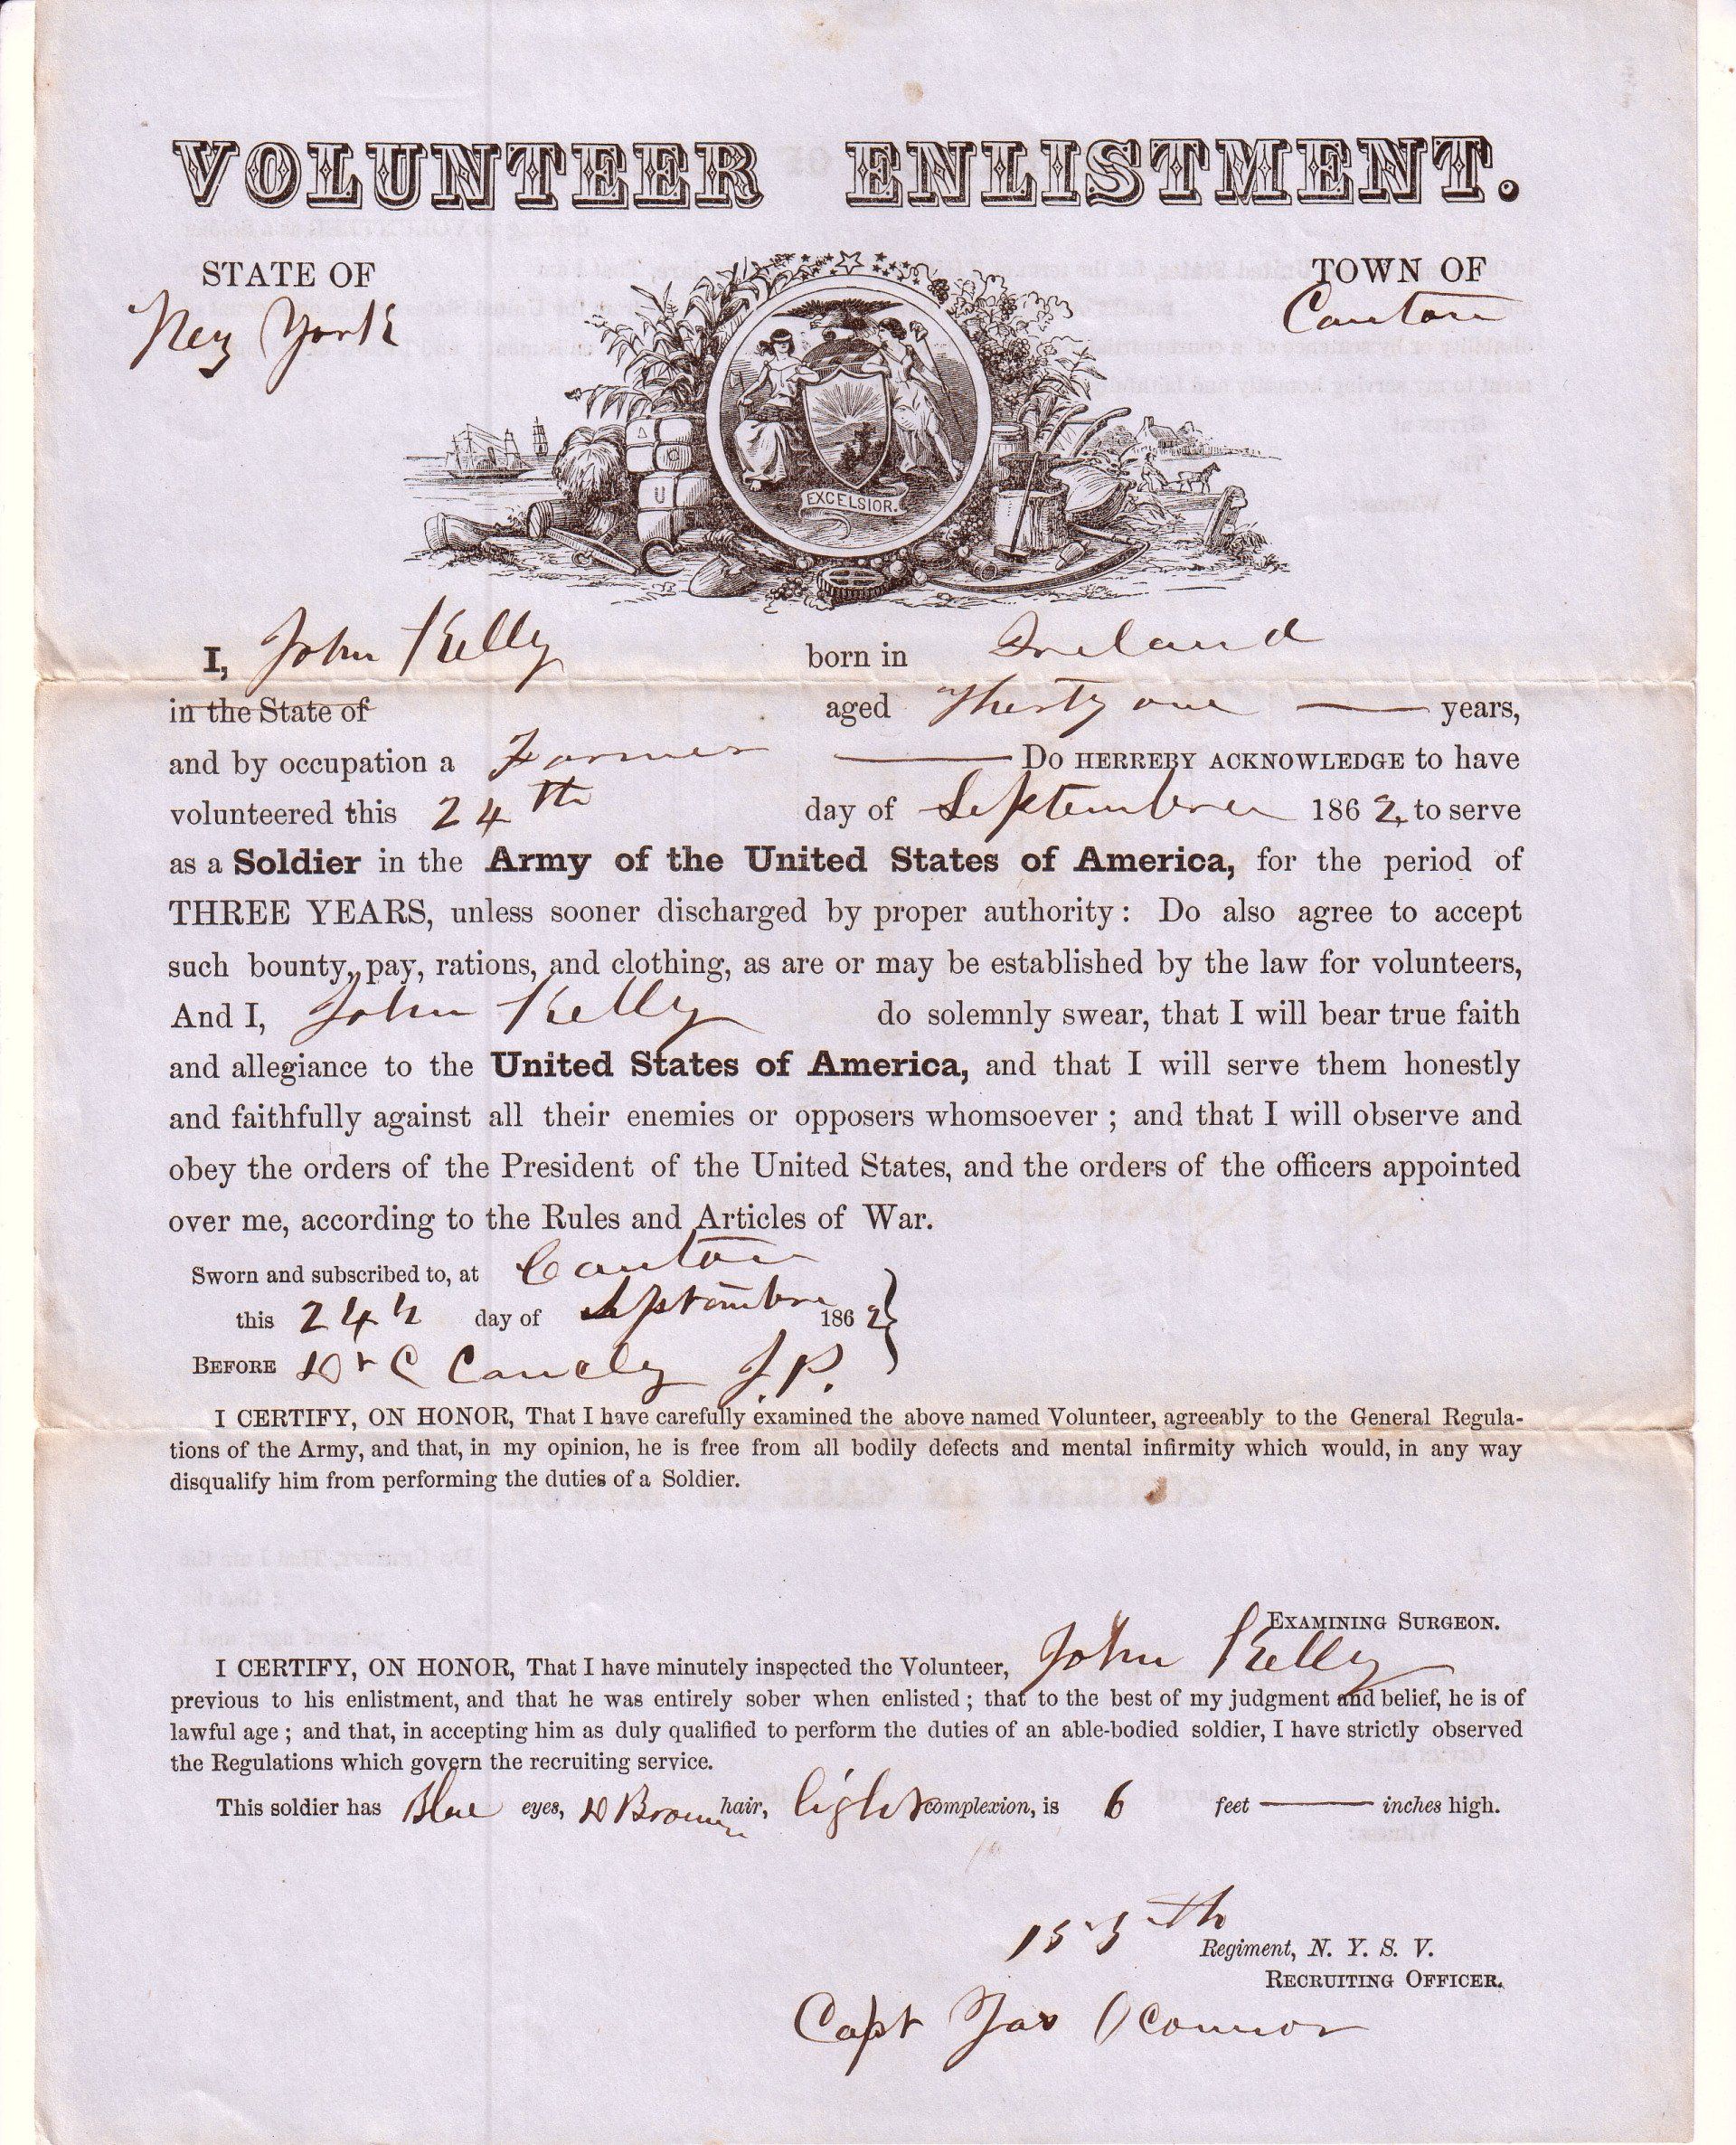 VOLUNTEER ENLISTMENT.
STATE OF
New York
TOWN OF
Canton
EXCELSIOR.
I, John Kelly born in Ireland
in the State of aged Thirty one — years,
and by occupation a Farmer — DO HERREBY ACKNOWLEDGE to have
volunteered this 24th day of September 1862, to serve
as a Soldier in the Army of the United States of America, for the period of
THREE YEARS, unless sooner discharged by proper authority: Do also agree to accept
such bounty,, pay, rations, and clothing, as are or may be established by the law for volunteers,
And I, John Kelly do solemnly swear, that I will bear true faith
and allegiance to the United States of America, and that I will serve them honestly
and faithfully against all their enemies or opposers whomsoever; and that I will observe and
obey the orders of the President of the United States, and the orders of the officers appointed
over me, according to the Rules and Articles of War.
Sworn and subscribed to, at Canton
this 24th day of September 1862
BEFORE J.P.
I CERTIFY, ON HONOR, That I have carefully examined the above named Volunteer, agreeably to the General Regula-
tions of the Army, and that, in my opinion, he is free from all bodily defects and mental infirmity which would, in any way
disqualify him from performing the duties of a Soldier.
EXAMINING SURGEON.
I CERTIFY, ON HONOR, That I have minutely inspected the Volunteer, John Kelly
previous to his enlistment, and that he was entirely sober when enlisted; that to the best of my judgment and belief, he is of
lawful age; and that, in accepting him as duly qualified to perform the duties of an able-bodied soldier, I have strictly observed
the Regulations which govern the recruiting service.
This soldier has Blue eyes, D Brown hair, light complexion, is 6 feet — inches high.
155th Regiment, N. Y. S. V.
RECRUITING OFFICER.
Capt Jas O'Connor